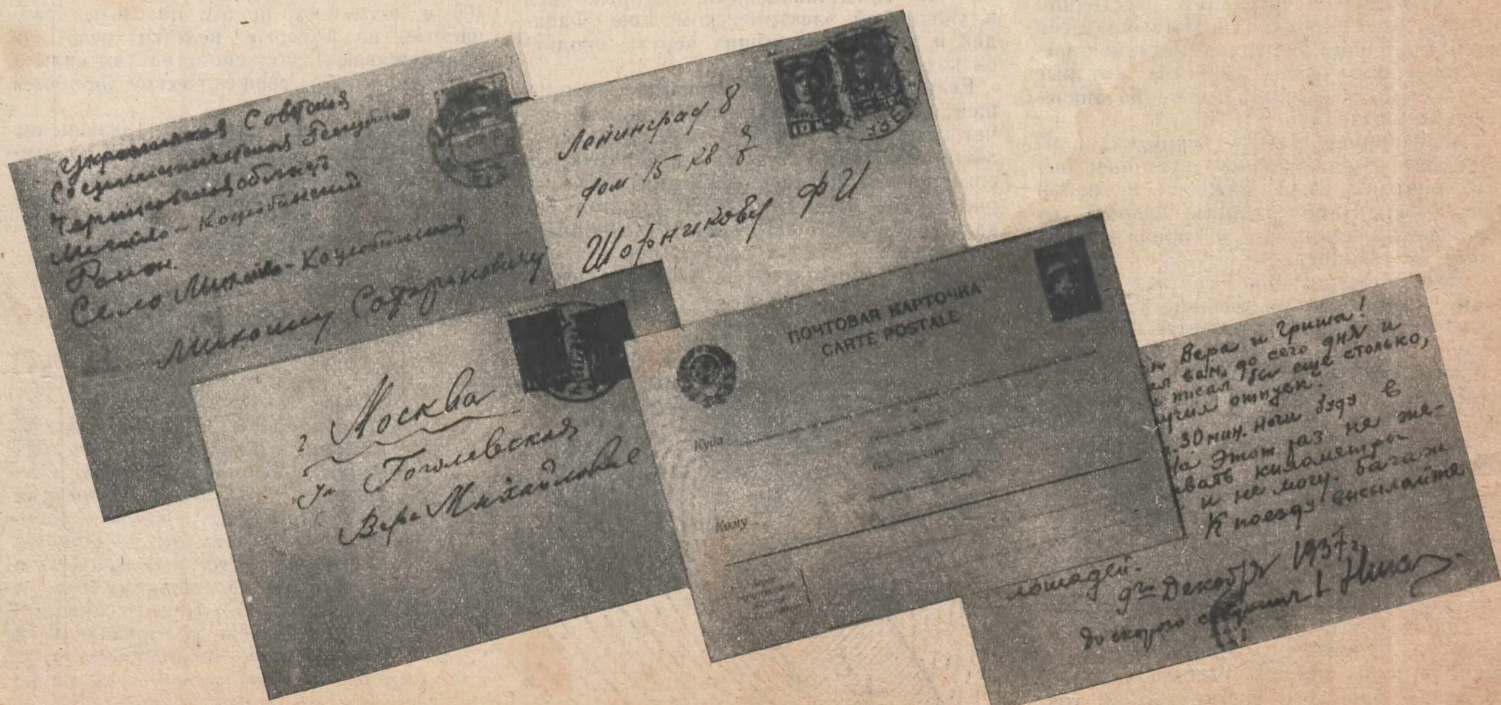 Украинская Советская
Социалистическая
область
Михайло-Коцюбинский
Район
Село Михайло-Коцюбинская
Ленинград 8
дом 15 кв 8
Шорникову ФИ
10 К
г Москва
Ул Гоголевская
Вере Михайловне
ПОЧТОВАЯ КАРТОЧКА
CARTE POSTALE
Куда
Кому
Вера и Гриша!
ал вам, до сего дня и
писал бы еще столько,
учил отпуск.
30 мин. ночи буду в
На этот раз не же-
вать километры
и не могу. багаж
К поезду высылайте
лошадей.
9го Декабря 1937г.
до скорого свидания